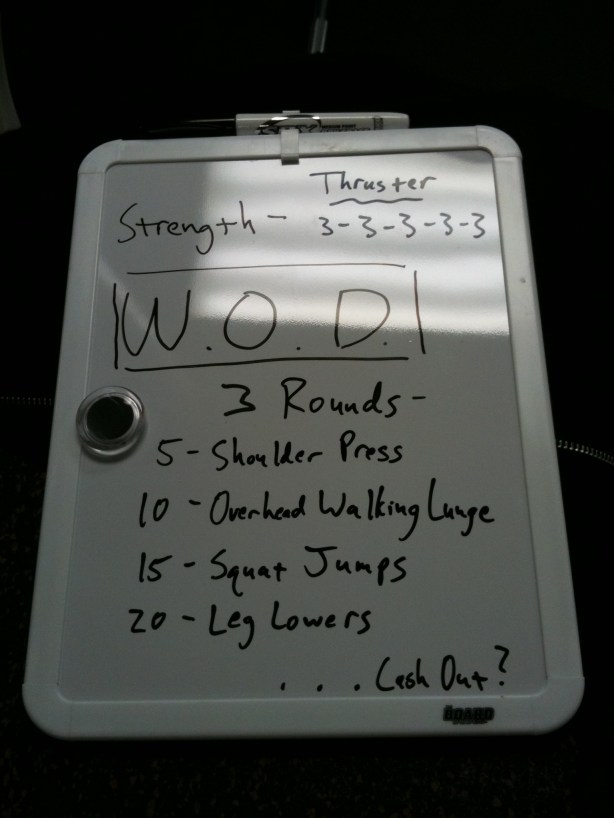 Thruster
Strength - 3-3-3-3-3
W.O.D.
3 Rounds -
5 - Shoulder Press
10 - Overhead Walking Lunge
15 - Squat Jumps
20 - Leg Lowers
. . . Cash Out?
THE BOARD